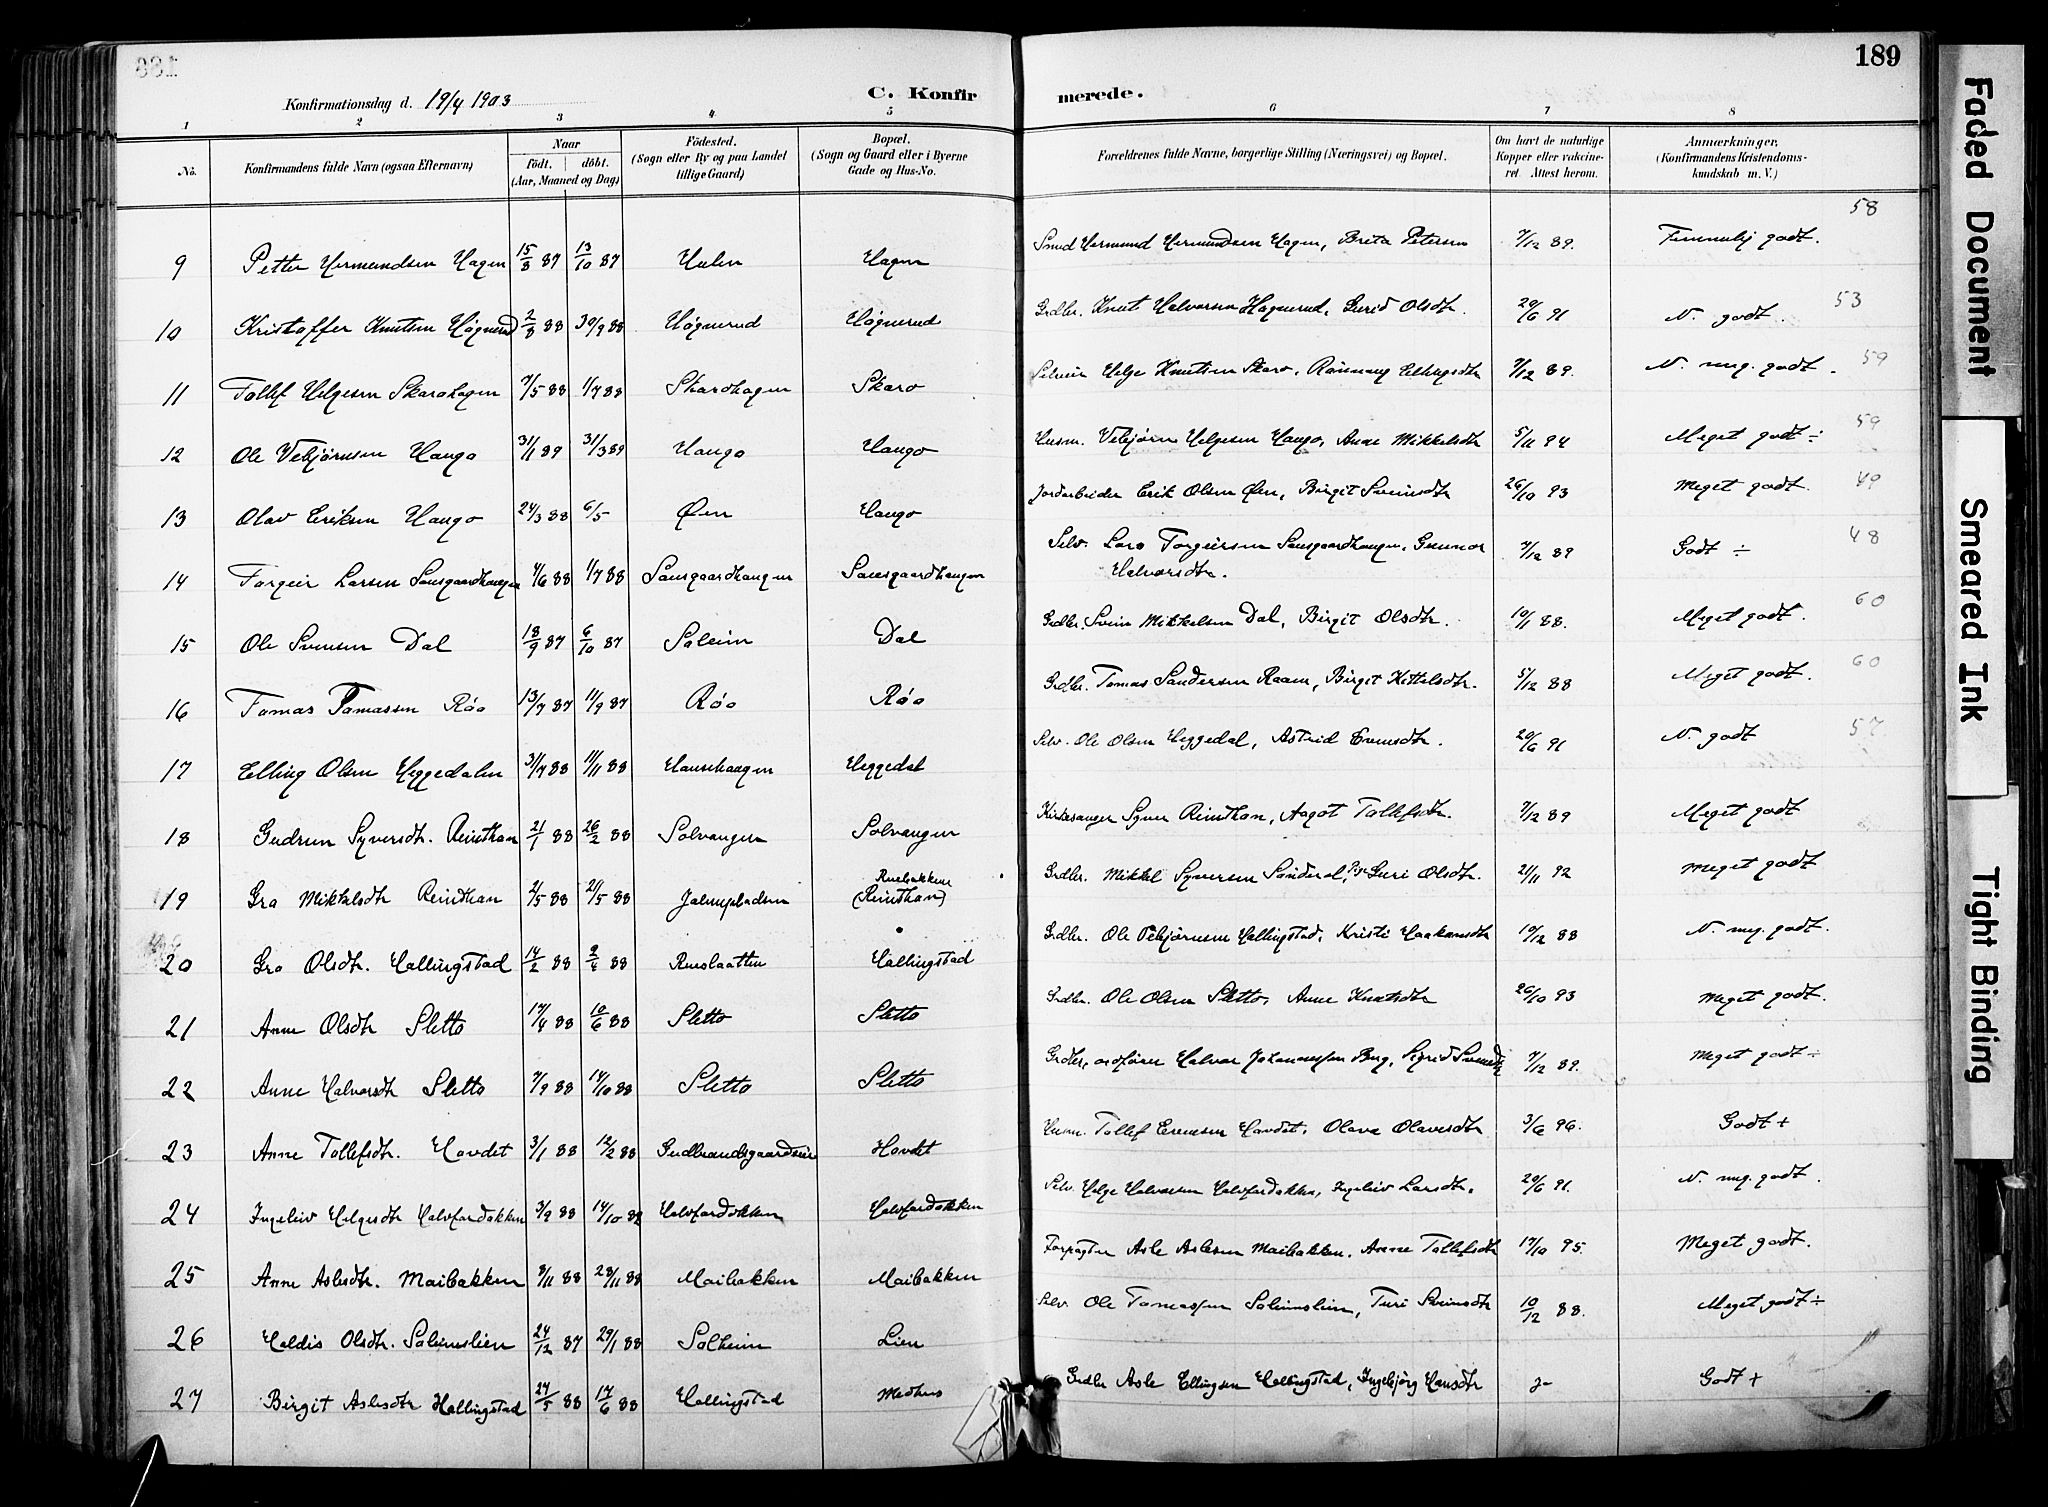 189
Konfirmationsdag d. 19/4 1903
C. Konfirmerede.
1 2 3 4 5 6 7 8
No.
Konfirmandens fulde Navn (ogsaa Efternavn)
Naar
født. døbt.
(Aar, Maaned og Dag)
Fødested.
(Sogn eller By og paa Landet
tillige Gaard)
Bopæl.
(Sogn og Gaard eller i Byerne
Gade og Hus-No.
Forældrenes fulde Navne, borgerlige Stilling (Næringsvei) og Bopæl.
Om havt de naturlige
Kopper eller vaccine-
ret. Attest herom.
Anmærkninger.
(Konfirmandens Kristendoms-
kundskab m. V.)
9 Petter Hermundsen Hagen 15/8 87 13/10 87 Hagen Hermund Hermundsen Hagen, Brita Petersen 7/12 89. godt. 58
10 Kristoffer Knutsen Høgnerud 2/8 88 30/9 88 Høgnerud Høgnerud Grdbr. Knut Halvorsen Høgnerud, Gurid Olsdtr. 20/6 91 N. godt. 53
11 Tollef Helgesen Skarohagen 7/5 88 1/7 88 Skarohagen Skaro Helge Knutsen Skaro, 7/12 89. N. meg. godt. 59
12 Ole Vebjørnsen Haugo 31/1 89 31/3 89 Haugo Haugo Husm. Vebjørn Helgesen Haugo, Anne Mikkelsdtr 5/11 94 Meget godt ÷ 59
13 Olav Eriksen Haugo 24/3 88 6/5 Øen Haugo Jordarbeider Erik Olsen Øen, Birgit Sveinsdtr 26/10 93 Meget godt. 49
14 Torgeir Larsen Sausgaardhaugen 4/6 88 1/7 88 Sausgaardhaugen Sausgaardhaugen Selv. Lars Torgeirsen Sausgaardhaugen, Gunnor
Halvorsdtr. 7/12 89 Godt ÷ 48
15 Ole Svensen Dal 18/9 87 6/10 87 Soleim Dal Grdbr. Svein Mikkelsen Dal, Birgit Olsdtr. 10/11 88. Meget godt. 60
16 Tomas Tomassen Røo 13/7 87 11/9 87 Røo Røo Grdbr. Tomas Sandersen Raaen, Birgit Kittelsdtr. 5/12 88 Meget godt. 60
17 Elling Olsen Heggedalen 31/7 88 11/11 88 Heggedal Selv. Ole Olsen Heggedal, Astrid Evensdtr. 20/6 91 N. godt 57
18 Gudrun Syversdtr. Reinthon 21/1 88 26/2 88 Solvangen Solvangen Kirkesanger Syver Reinthon, Aagot Tollefsdtr. 7/12 89 Meget godt
19 Gro Mikkelsdtr Reinthon 2/5 88 21/5 88 Ruebakken
(Reinthon) Grdbr. Mikkel Syversen Guri Olsdtr. 21/11 92 Meget godt
20 Gro Olsdtr. Hallingstad 14/2 88 2/4 88 Ruuslaatten Hallingstad Grdbr. Ole Vebjørnsen Hallingstad, Kristi Haakonsdtr 10/12 88 N. meg. godt.
21 Anne Olsdtr Sletto 17/4 88 10/6 88 Sletto Sletto Grdbr. Ole Olsen Sletto, Anne Knutsdtr 26/10 93 Meget godt.
22 Anne Halvorsdtr Sletto 7/9 88 14/10 88 Sletto Sletto Grdbr, ordfører Halvor Johannessen Berg, Sigrid Svensdtr 7/12 89. Meget godt ÷
23 Anne Tollefsdtr. Hovdet 3/1 88 12/2 88 Gudbrandsgaardseie Hovdet Husm. Tollef Evensen Hovdet, Olava Olavesdtr 3/6 96. Godt +
24 Ingeleiv Helgesdtr Halvfardokken 3/9 88 14/10 88 Halvfardokken Halvfardokken Selv. Helge Halvorsen Halvfardokken, Ingeleiv Larsdtr. 20/6 91. N. meg. godt.
25 Anne Aslesdtr. Maibakken 8/11 88 28/11 88 Maibakken Maibakken Forpagter Asle Aslesen Maibakken, Anne Tollefsdtr 17/10 95. Meget godt.
26 Haldis Olsdtr. Soleimslien 24/12 87 29/1 88 Solheim Lien Selv. Ole Tomassen Soleimslien, Turi Sveinsdtr 10/12 88. Meget godt ÷
27 Birgit Aslesdtr Hallingstad 27/5 88 17/6 88 Hallingstad Medhus Grdbr Asle Ellingsen Hallingstad, Ingebjørg Hansdtr Godt +
Faded Document
Smeared Ink
Tight Binding